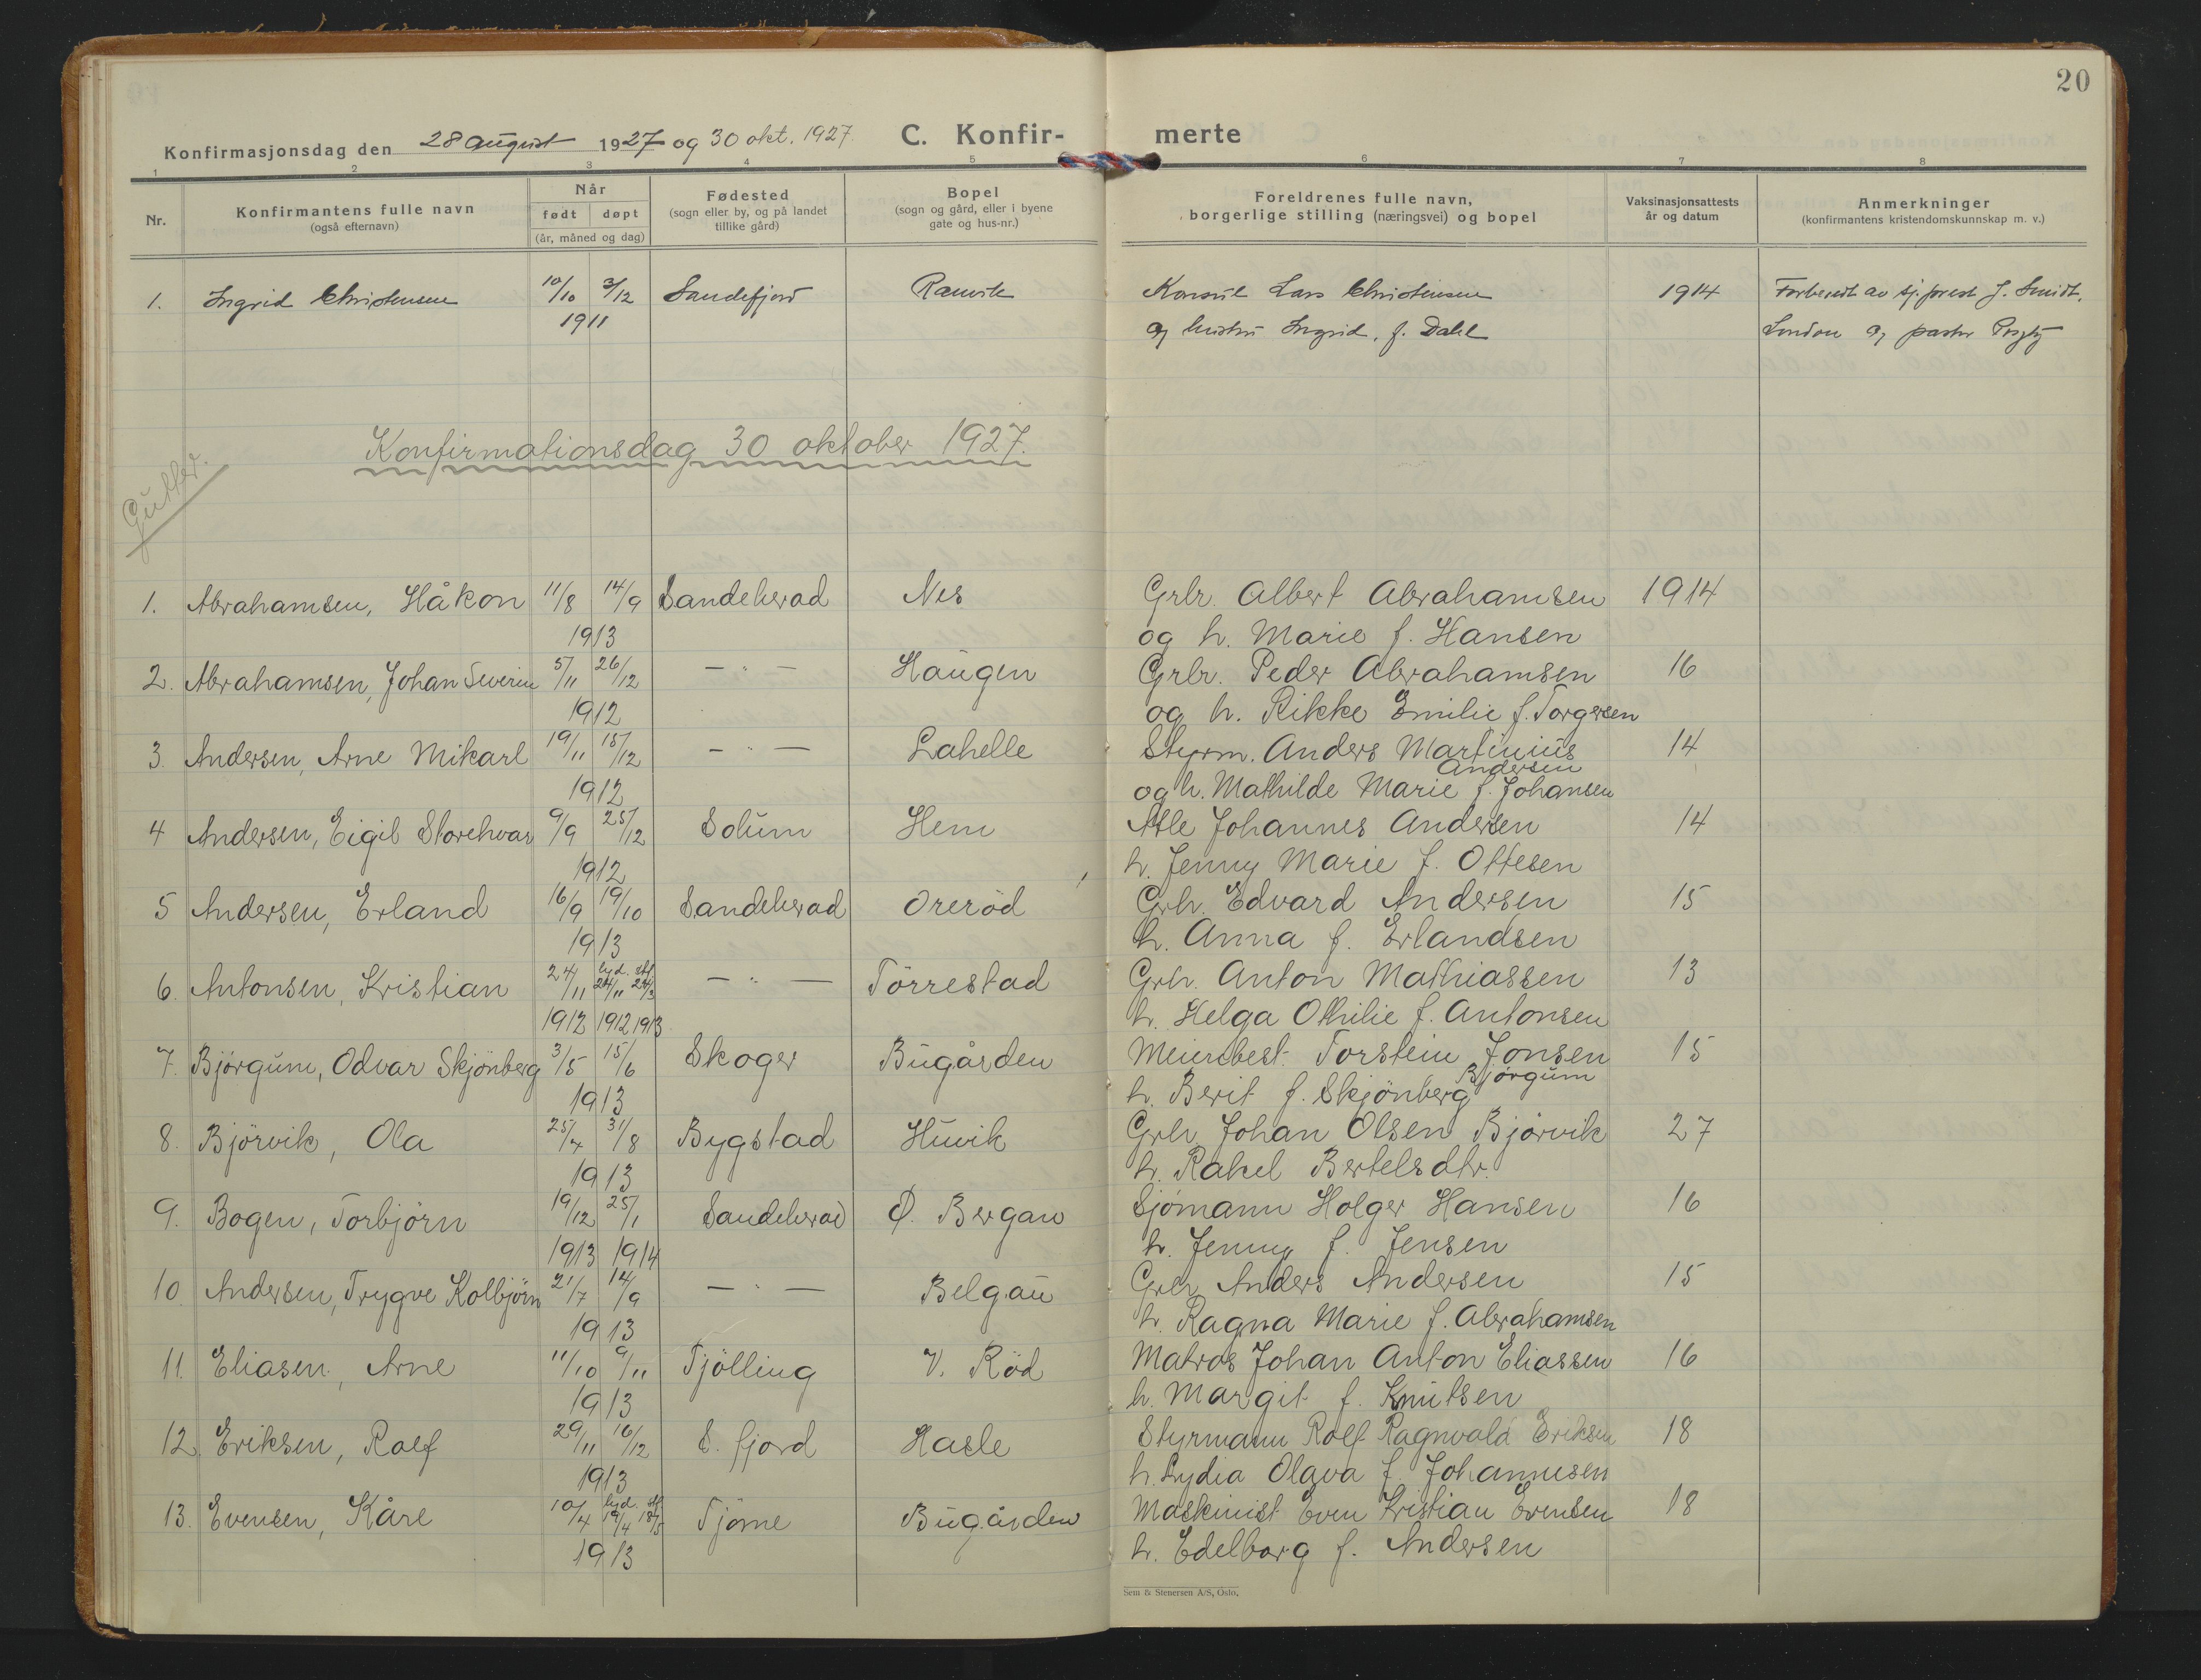 20
Konfirmasjonsdag den 28 august 1927 og 30 okt. 1927. C. Konfir- merte
1 2 3 4 5 6 7 8
Nr. Konfirmantens fulle navn (også efternavn) Når født døpt (år, måned og dag) Fødested (sogn eller by, og på landet tillike gård) Bopel (sogn og gård, eller i byene gate og hus-nr.) Foreldrenes fulle navn, borgerlige stilling (næringsvei) og bopel Vaksinasjonsattests år og datum Anmerkninger (konfirmantens kristendomskunnskap m. v.)
1. Ingrid Christensen 10/10 3/12 Sandefjord Ranvik Konsul Lars Christensen 1914 Forberedt av sj.prest J. Smidt,
1911 og hustru Ingrid, f. Dahl London og pastor
Konfirmationsdag 30 oktober 1927.
Gutter.
1. Abrahamsen, Håkon 11/8 14/9 Sandeherad Nes Grbr. Albert Abrahamsen 1914
1913 og h. Marie f. Hansen
2. Abrahamsen, Johan Severin 5/11 26/12 — " — Haugen Grbr. Peder Abrahamsen 16
1912 og h. Rikke Emilie f. Torgersen
3. Andersen, Arne Mikarl 19/11 15/12 — " — Lahelle Styrm. Anders Martinius Andersen 14
1912 og h. Mathilde Marie f. Johansen
4 Andersen, Eigil Storehvar 9/9 25/12 Solum Hem Atle Johannes Andersen 14
1912 h. Jenny Marie f. Ottesen
5 Andersen, Erland 16/9 19/10 Sandeherad Orerød Grbr. Edvard Andersen 15
1913 h. Anna f. Erlandsen
6. Antonsen, Kristian 24/11 hjd. 24/11 stf. 24/3 — " — Törrestad Grbr. Anton Mathiassen 13
1912 1912 1913 h. Helga Othilie f. Antonsen
7. Bjørgum, Odvar Skjönberg 3/5 15/6 Skoger Bugården Meieribest. Torstein Jonsen Bjørgum 15
1913 h. Berit f. Skjönberg
8. Björvik, Ola 25/4 31/8 Bygstad Huvik Grbr Johan Olsen Bjørvik 27
1913 h. Rakel Bertelsdtr.
9. Bogen, Torbjörn 19/12 25/1 Sandeherad Ø. Bergan Sjömann Holger Hansen 16
1913 1914 h. Jenny f. Jensen
10. Andersen, Trygve Kolbjörn 21/7 14/9 — " — Belgau Grbr Anders Andersen 15
1913 h. Ragna Marie f. Abrahamsen
11. Eliasen, Arne 11/10 9/11 Tjölling V. Röd Matros Johan Anton Eliassen 16
1913 h. Margit f. Knutsen
12. Eriksen, Rolf 29/11 16/12 S. fjord Hasle Styrmann Rolf Ragnvald Eriksen 18
1913 h. Lydia Olava f. Johannesen
13. Evensen, Kåre 10/4 hjd. 19/4 stf. 18/5 Tjöme Bugården Maskinist Even Kristian Evensen 18
1913 h. Edelborg f. Andersen
Sem & Stenersen A/S, Oslo.